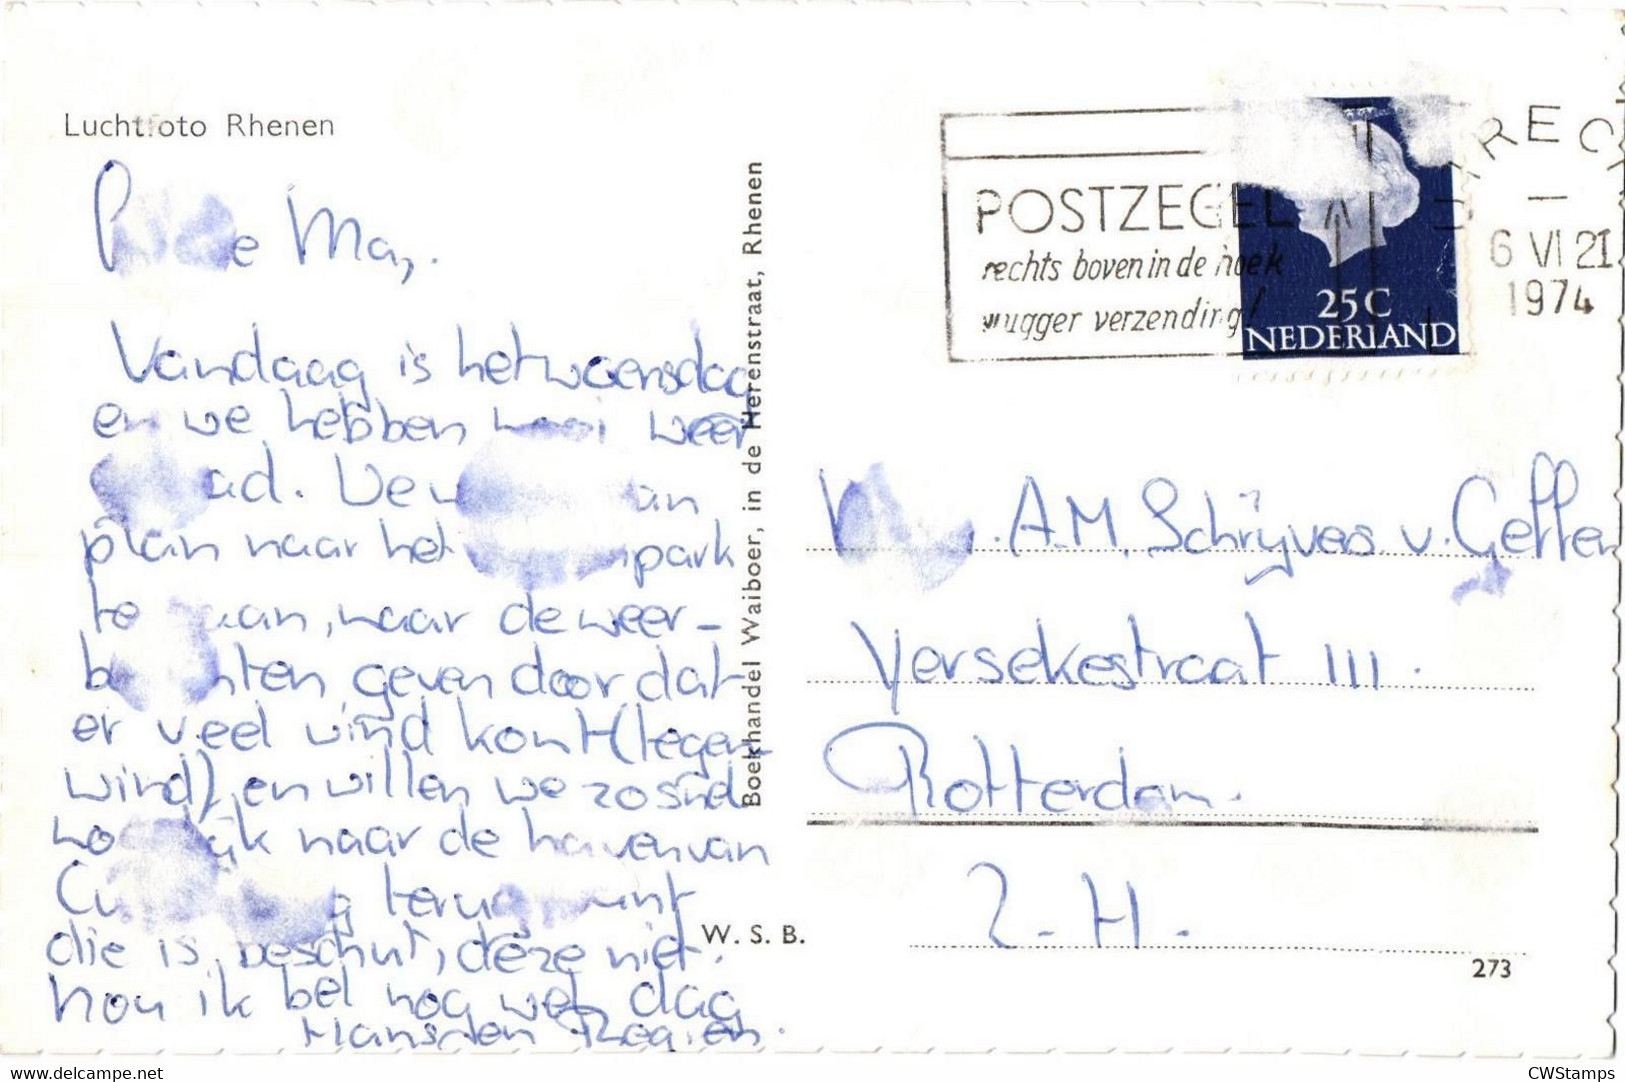 Luchtfoto Rhenen
Ma,.
Vandaag is het woensdag
en we hebben mooi weer
. We
plan naar het park
te gaan, maar de weer-
berichten geven door dat
er veel wind komt (tegen-
wind) en willen we zo snel
naar de haven van
terug want
die is beschut, deze niet.
Nou ik bel nog wel dag
Hans en
Boekhandel Waiboer, in de Herenstraat, Rhenen
W. S. B.
POSTZEGEL
rechts boven in de hoek
vlugger verzending!
25C
NEDERLAND
TRECH
6 VI 21
1974
A.M. Schrijvers v. Geffen
Yersekestraat 111.
Rotterdam.
Z-H.
273
www.delcampe.net
CWStamps